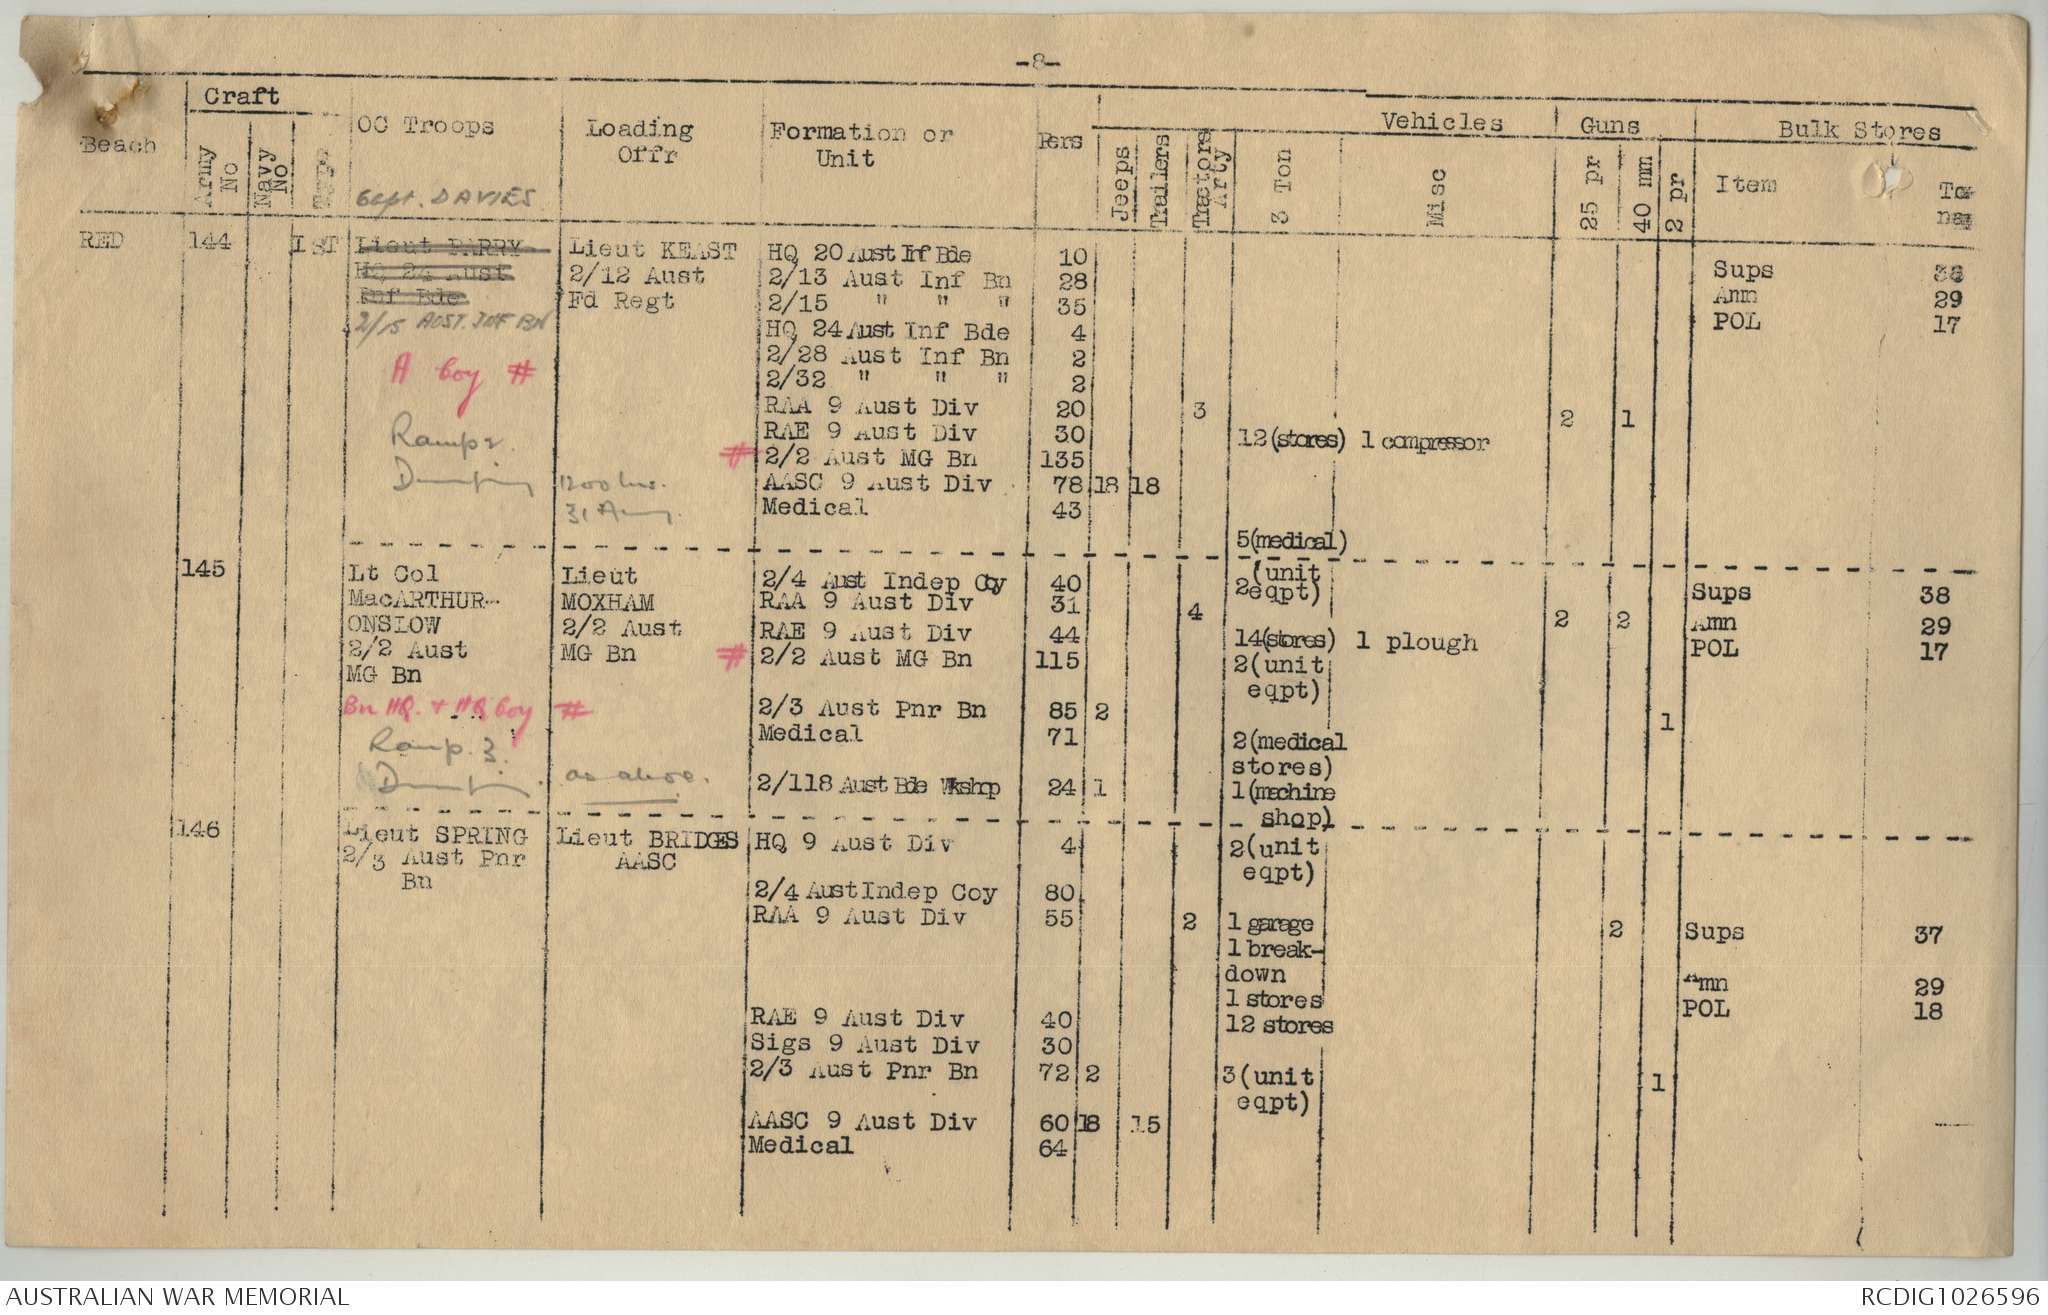 -8-
Craft
Beach
Army No
Navy No
Type
OC Troops
Loading Offr
Formation or Unit
Pers
Vehicles
Jeeps
Trailers
Tractors Arty
3 Ton
Misc
Guns
25 pr
40 mm
2 pr
Bulk Stores
Item
Capt. DAVIES
RED 144 LST Lieut PARRY Lieut KEAST HQ 20 Aust Inf Bde 10 Sups
HQ 24 Aust 2/12 Aust 2/13 Aust Inf Bn 28 Amn 29
Inf Bde Fd Regt 2/15 " " " 35 POL 17
2/15 AUST. INF BN HQ 24 Aust Inf Bde 4
2/28 Aust Inf Bn 2
A Coy # 2/32 " " " 2
RAA 9 Aust Div 20 3 2 1
Ramp 2. RAE 9 Aust Div 30 12(stores) 1 compressor
# 2/2 Aust MG Bn 135
1200 hrs. AASC 9 Aust Div 78 18 18
31 Aug. Medical 43
5(medical)
145 Lt Col Lieut 2/4 Aust Indep Coy 40 2(unit eqpt) Sups 38
MacARTHUR- MOXHAM RAA 9 Aust Div 31 4 2 2
ONSLOW 2/2 Aust RAE 9 Aust Div 44 14(stores) 1 plough Amn 29
2/2 Aust MG Bn # 2/2 Aust MG Bn 115 2(unit POL 17
MG Bn eqpt)
Bn HQ. + HQ Coy # 2/3 Aust Pnr Bn 85 2 1
Ramp. 3. Medical 71 2(medical
stores)
as above. 2/118 Aust Bde Wkshop 24 1 1(machine
shop)
146 Lieut SPRING Lieut BRIDGES HQ 9 Aust Div 4 2(unit
2/3 Aust Pnr AASC eqpt)
Bn 2/4 Aust Indep Coy 80
RAA 9 Aust Div 55 2 1 garage 2 Sups 37
1 break-
down Amn 29
1 stores
RAE 9 Aust Div 40 12 stores POL 18
Sigs 9 Aust Div 30
2/3 Aust Pnr Bn 72 2 3(unit 1
eqpt)
AASC 9 Aust Div 60 18 15
Medical 64
AUSTRALIAN WAR MEMORIAL RCDIG1026596